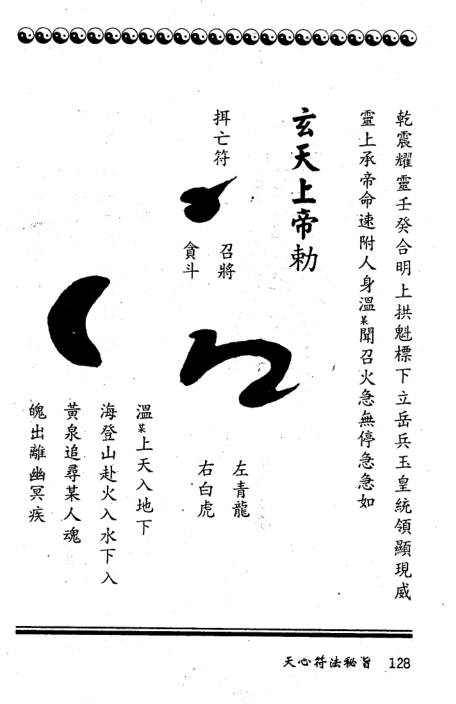 乾震耀靈壬癸合明上拱魁標下立岳兵玉皇統領顯現威
靈上承帝命速附人身溫某聞召火急無停急急如
玄天上帝勅
揖亡符
召將
貪斗
左青龍
右白虎
溫某上天入地下
海登山赴火入水下入
黃泉追尋某人魂
魄出離幽冥疾
天心符法秘旨 128